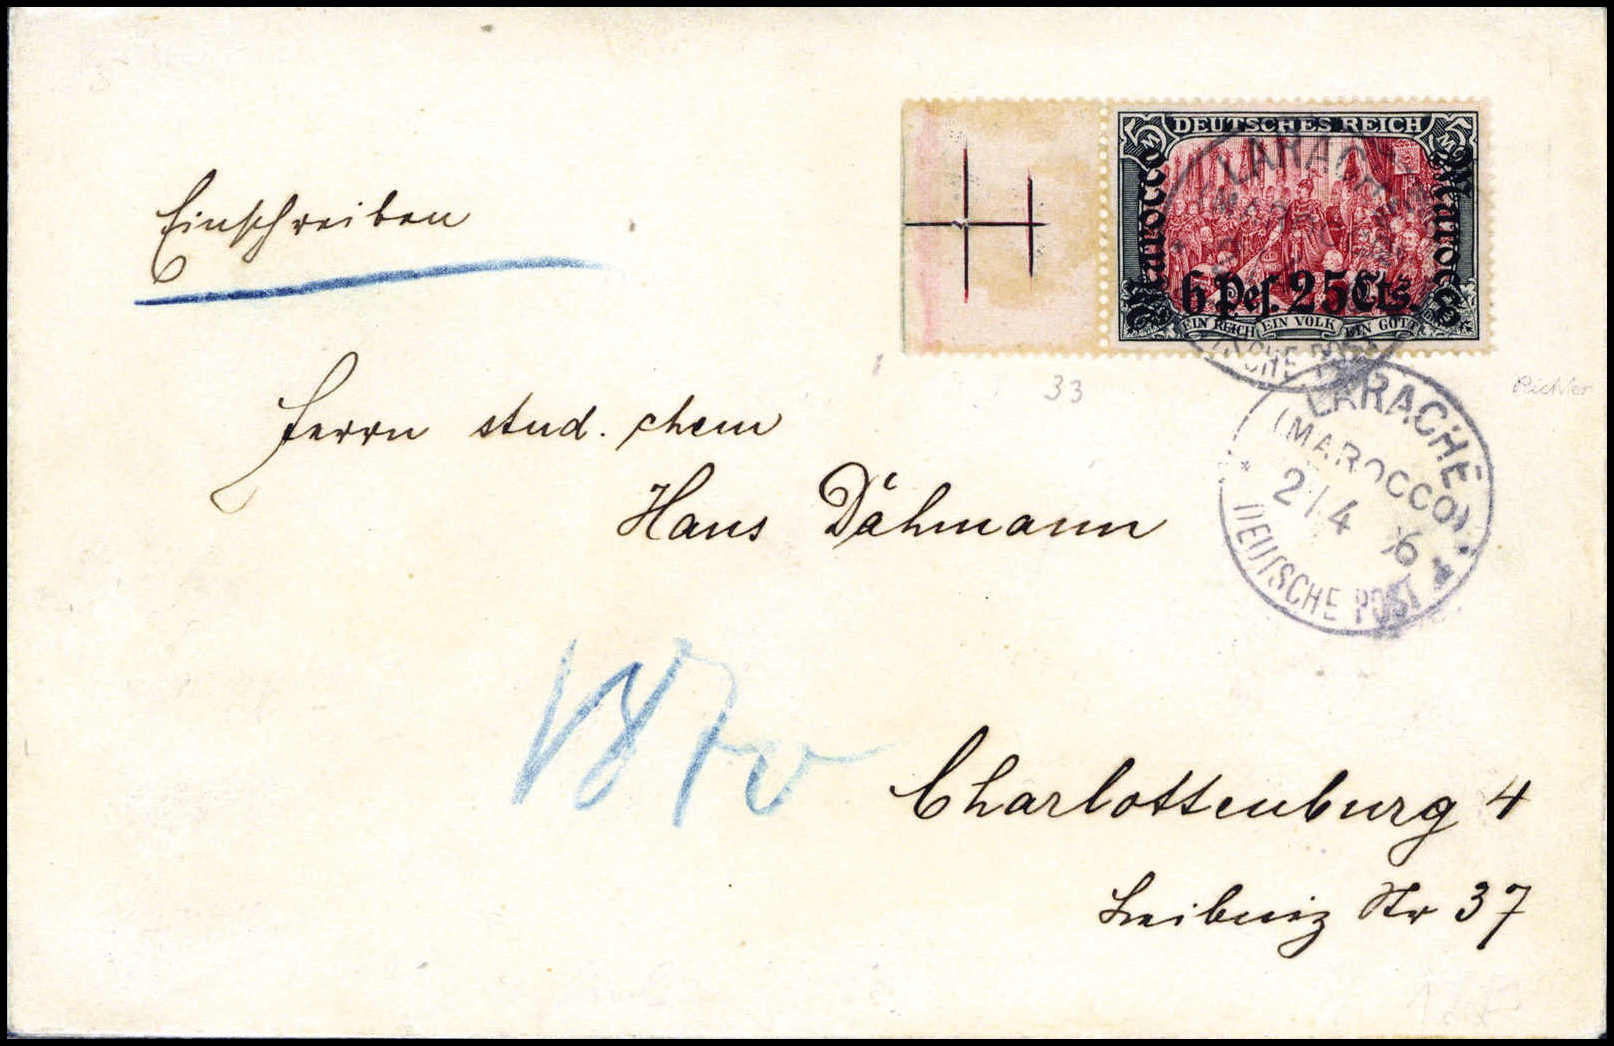 DEUTSCHES REICH
5 M 5 M
Marocco Marocco
6 Pes. 25 Cts.
EIN REICH EIN VOLK EIN GOTT
LARACHE
Einschreiben
33
Richter
LARACHE
(MAROCCO)
2/4 06
DEUTSCHE POST
Herrn stud. chem
Hans Dähmann
Charlottenburg 4
Leibniz Str 37